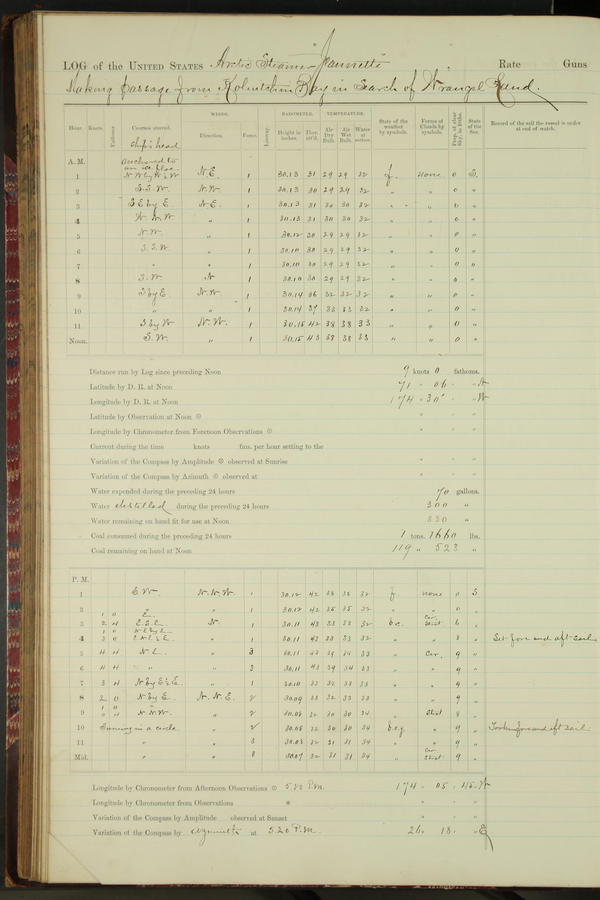 LOG of the UNITED STATES Arctic Steamer Jeannette Rate Guns
Making passage from Koliutchin Bay in Search of Wrangel Land.
Hour. Knots. Courses steered. WINDS. Direction. Force. Leeway. BAROMETER. Height in inches. Ther. att'd. TEMPERATURE. Air Dry Bulb. Air Wet Bulb. Water at surface. State of the weather by symbols. Forms of Clouds by symbols. Prop. of clear Sky, in 10ths. State of the Sea. Record of the sail the vessel is under at end of watch.
Ship's head
A. M. anchored to
1 N.E. 1 30.13 31 29 29 32 f. none 0 S.
2 S.S.W. N.W. 1 30.13 30 29 29 32 " " 0 "
3 S.E by E. N.E. 1 30.13 31 30 30 32 " " 0 "
4 W.N.W " 1 30.13 31 30 30 32 " " 0 "
5 N.W. " 1 30.12 30 29 29 32 " " 0 "
6 S.S.W. " 1 30.10 30 29 29 32 " " 0 "
7 " " 1 30.10 30 29 29 32 " " 0 "
8 S.W. N 1 30.10 30 29 29 32 " " 0 "
9 S by E N.W. 1 30.14 36 32 32 32 " " 0 "
10 " " 1 30.14 37 33 33 32 " " 0 "
11 S by W N.W. 1 30.15 42 38 38 33 " " 0 "
Noon. S.W. " 1 30.15 43 38 38 33 " " 0 "
Distance run by Log since preceding Noon 9 knots 0 fathoms.
Latitude by D. R. at Noon 71 " 06 " " N
Longitude by D. R. at Noon 174 " 30' " " W
Latitude by Observation at Noon
Longitude by Chronometer from Forenoon Observations
Current during the time knots fms. per hour setting to the
Variation of the Compass by Amplitude observed at Sunrise
Variation of the Compass by Azimuth observed at
Water expended during the preceding 24 hours 70 gallons.
Water distilled during the preceding 24 hours 300 "
Water remaining on hand fit for use at Noon 830 "
Coal consumed during the preceding 24 hours 1 tons. 1660 lbs.
Coal remaining on hand at Noon 119 " 523 "
P. M.
1 N.N.W. 1 30.12 42 32 f. none 0 S
2 1 0 E. " 1 30.12 42 35 35 32 " " 0 "
3 2 4 E.S.E. N. 1 30.11 43 33 33 32 b.c. 6 "
4 " 1 30.11 43 33 33 32 " " 8 " Set fore and aft sails
5 4 4 N.E. " 3 30.11 43 33 " Cir. 9 "
6 4 4 " " 3 30.11 43 33 " " 9 "
7 3 4 " 1 30.10 33 32 33 33 " " 9 "
8 2 0 N by E N.N.E. 2 30.09 33 32 33 33 " " 9 "
9 N.N.W. " 2 30.08 32 30 30 34 " 8 "
10 Turning in a circle " 2 30.08 32 30 30 34 9 " Took in fore and aft sail
11 " " 3 30.08 32 31 31 34 " " 9 "
Mid. " " 3 30.07 32 31 31 34 " 9 "
Longitude by Chronometer from Afternoon Observations 5.20 P.M. 174 " 05 " 45 " W
Longitude by Chronometer from Observations
Variation of the Compass by Amplitude observed at Sunset
Variation of the Compass by Azimuth at 5.20 P.M. 20 " 18 " " E